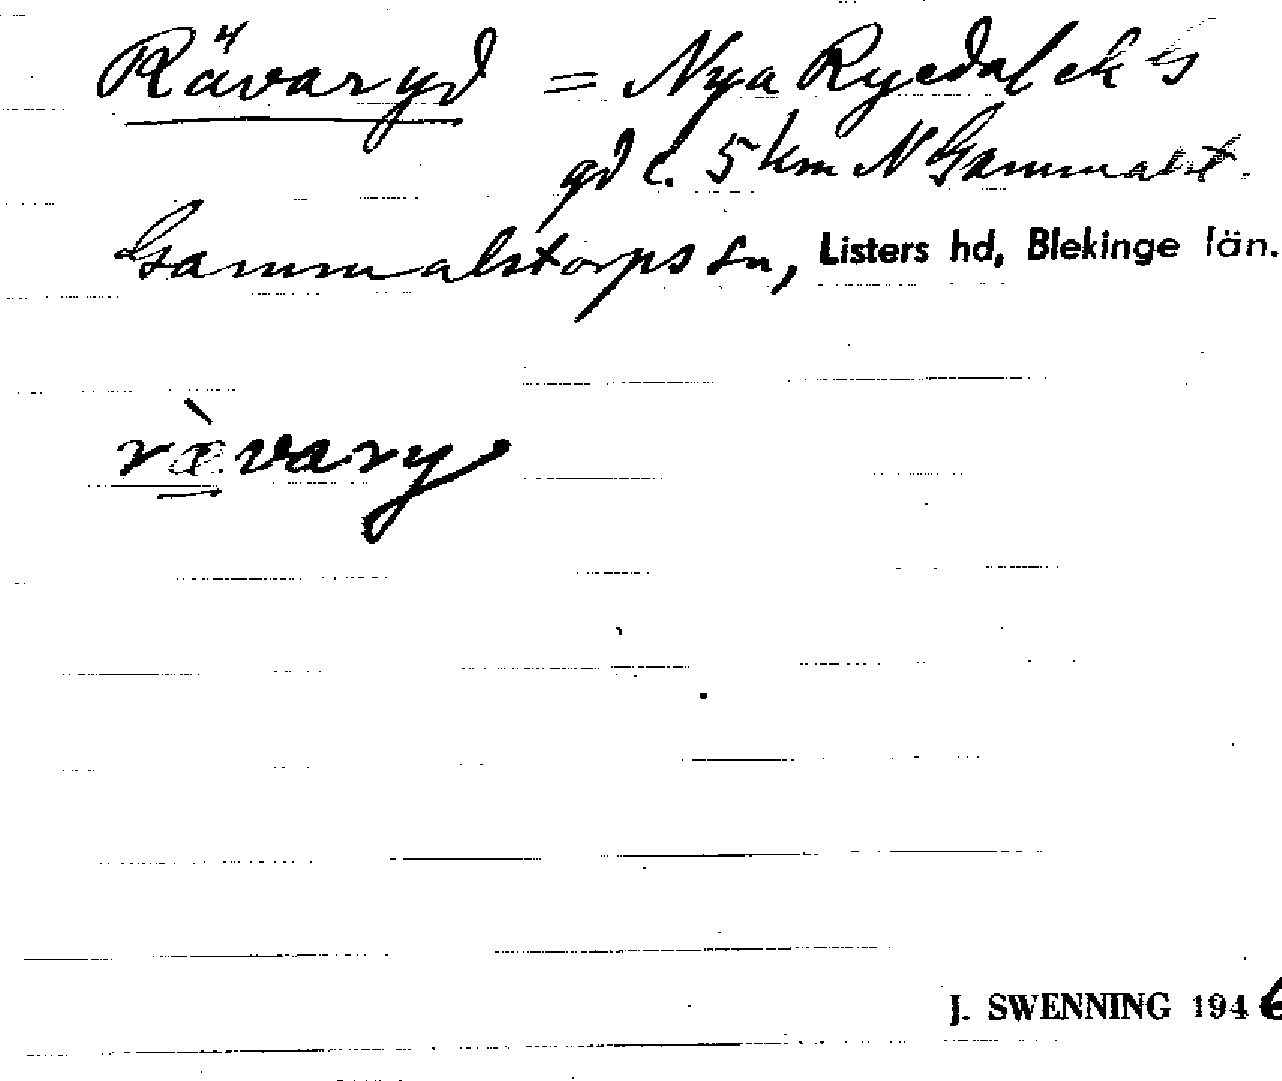 Rävaryd = Nya Ryedal ek G
gd c. 5 km N Gammalst.
Gammalstorps sn, Listers hd, Blekinge län.
ràværy
J. SWENNING 1946